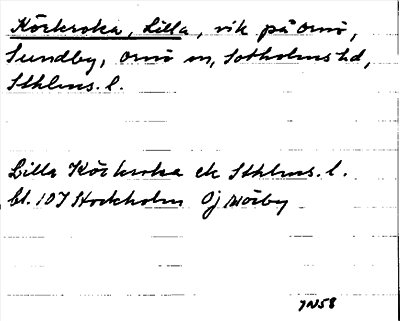 Körkroka, Lilla, vik på Ornö,
Sundby, Ornö sn, Sotholms hd,
Sthlms. l.
Lilla Körkroka ek Sthlms. l.
bl. 107 Stockholm Oj Mörby
JN58